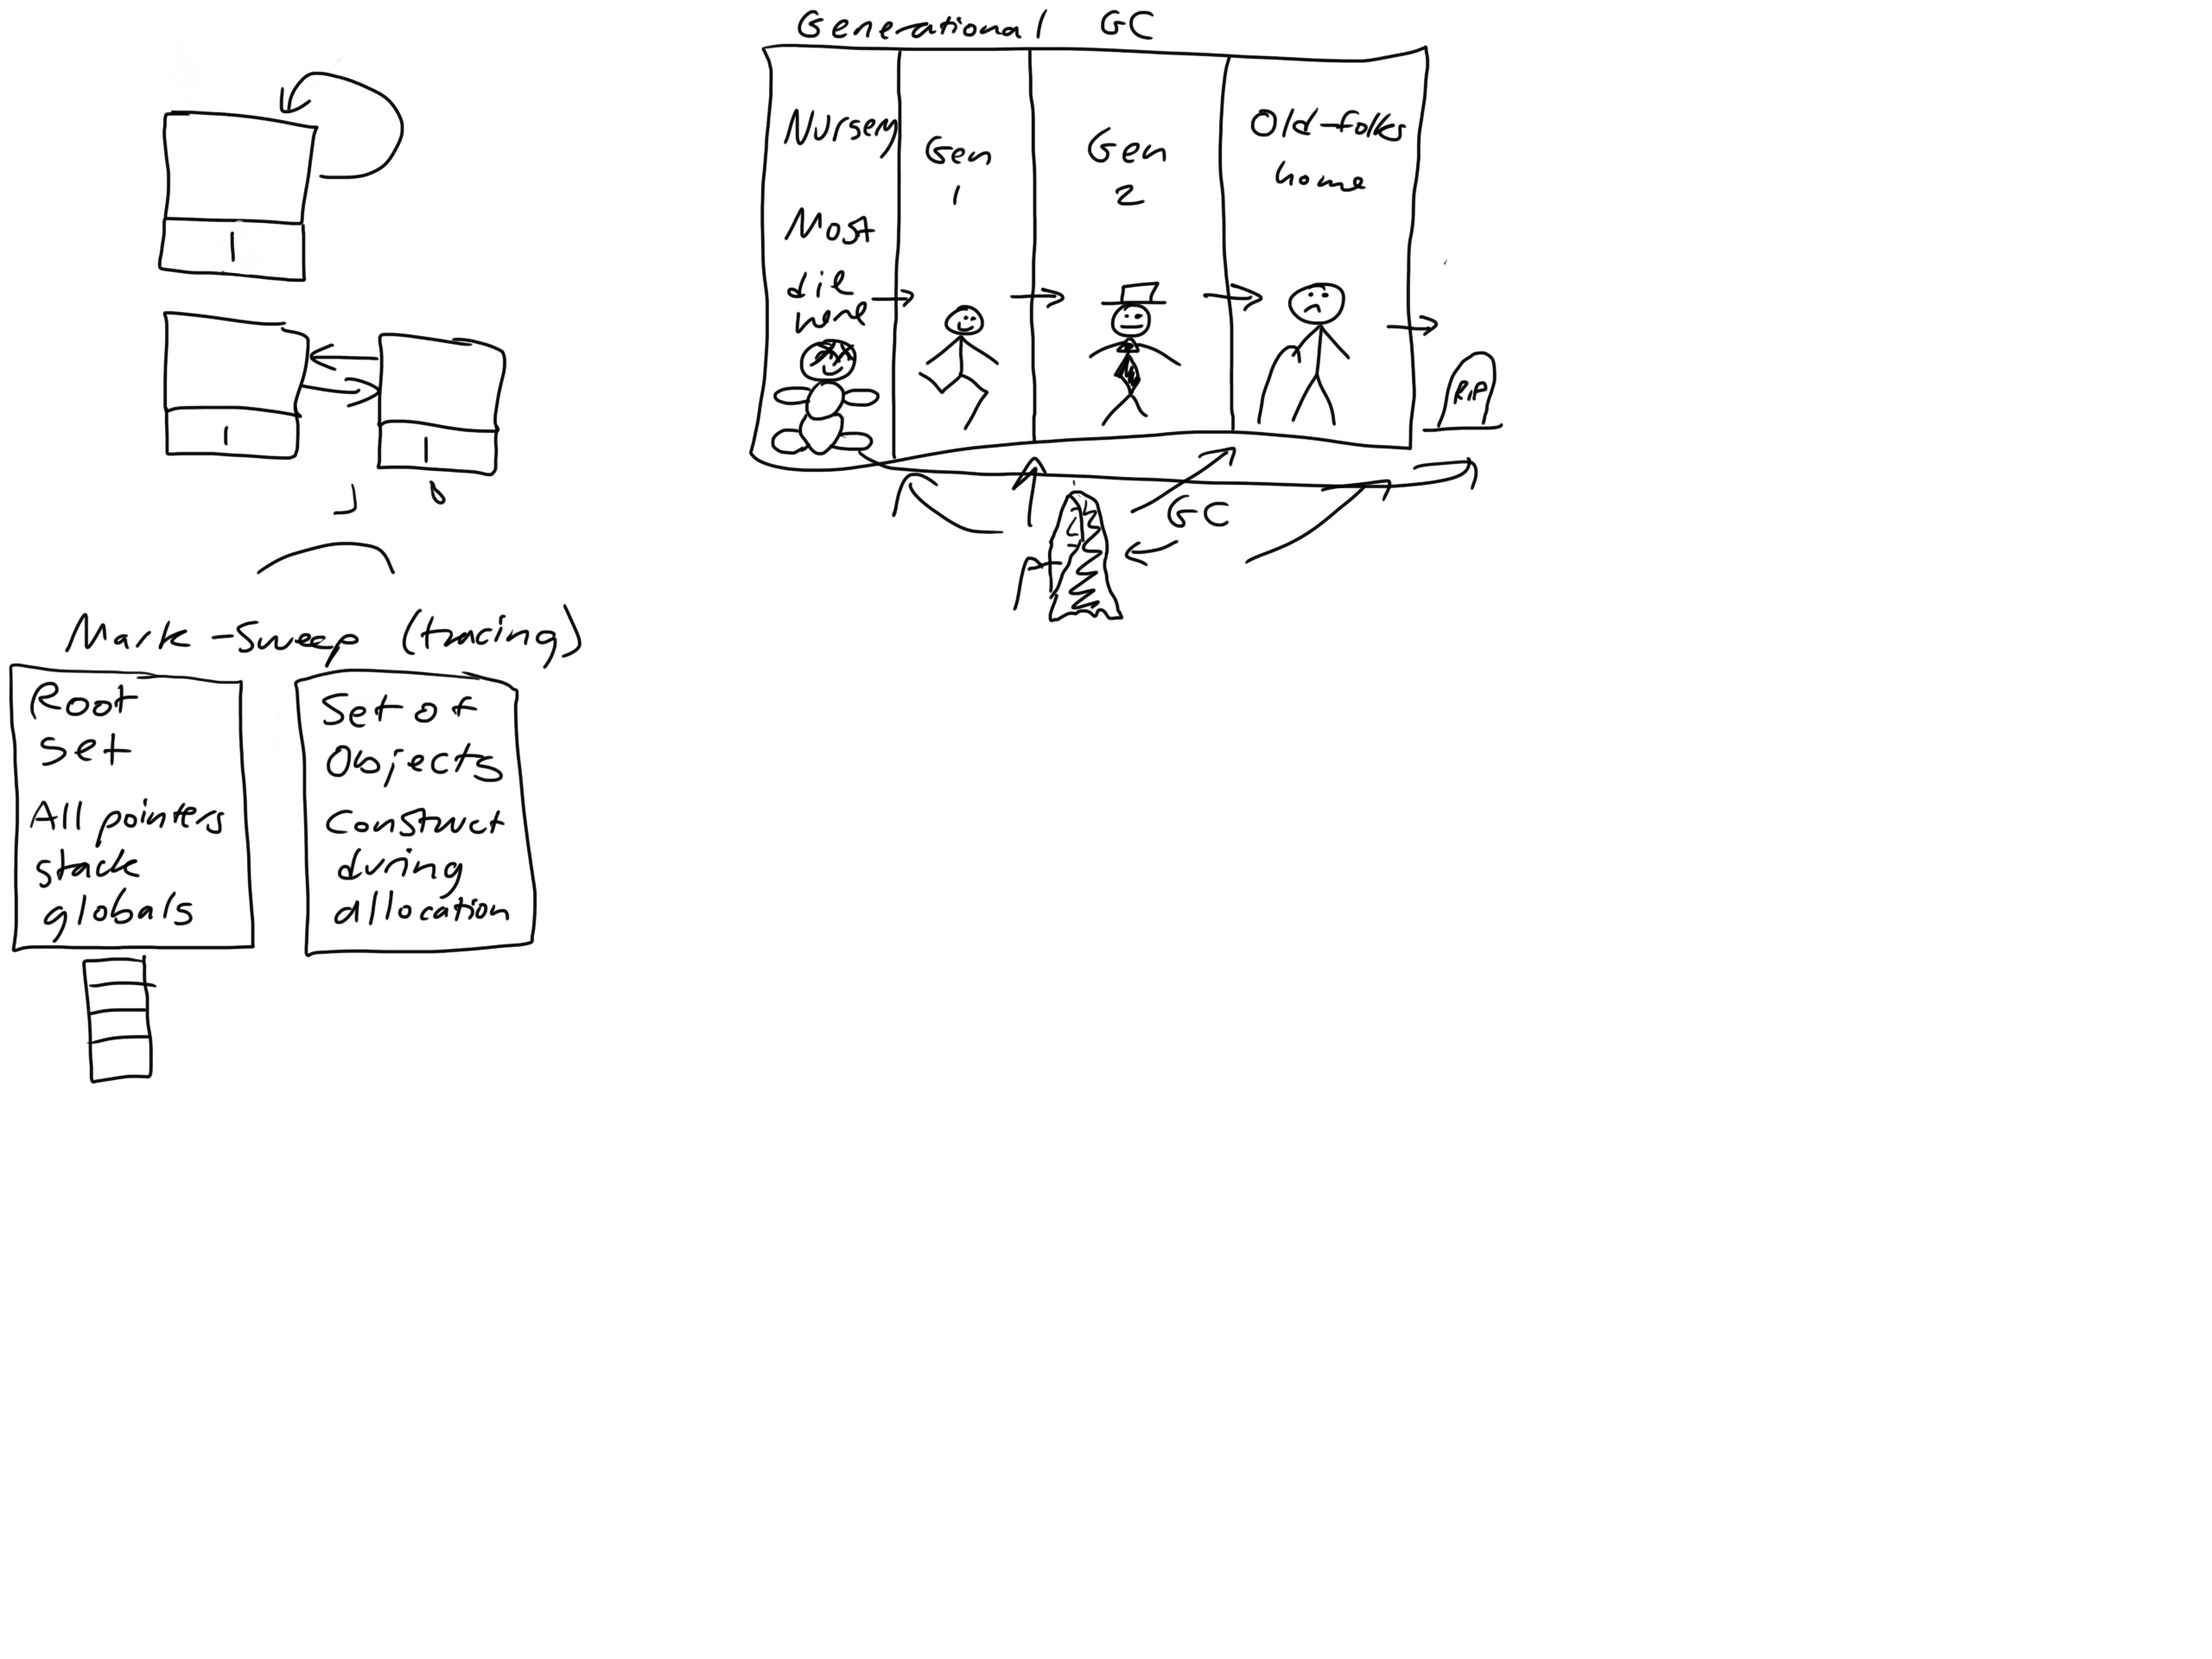 1
1
1
Mark-Sweep (tracing)
Root
set
All pointers
stack
globals
Set of
Objects
Construct
during
allocation
Generational GC
Nursery
Most
die
here
Gen
1
Gen
2
Old-folks
home
RIP
GC